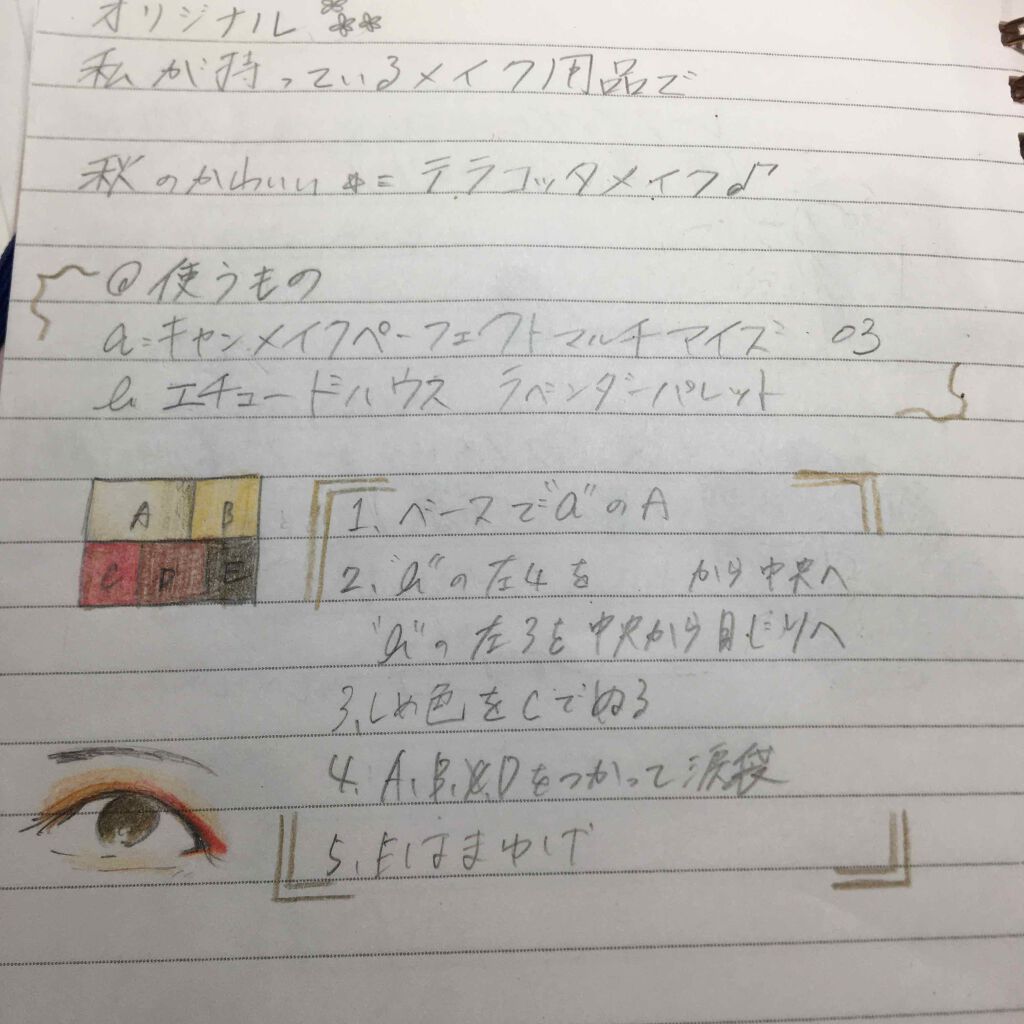 オリジナル
私が持っているメイク用品で
秋のかわいい テラコッタメイク♪
@使うもの
a:キャンメイクパーフェクトマルチアイズ 03
b. エチュードハウス ラベンダーパレット
A B
C D E
1、ベースで"a"のA
2、"a"の左4を から中央へ
"a"の左3を中央から目じりへ
3、しめ色をCでぬる
4、A、B、Dをつかって涙袋
5、Eはまゆげ